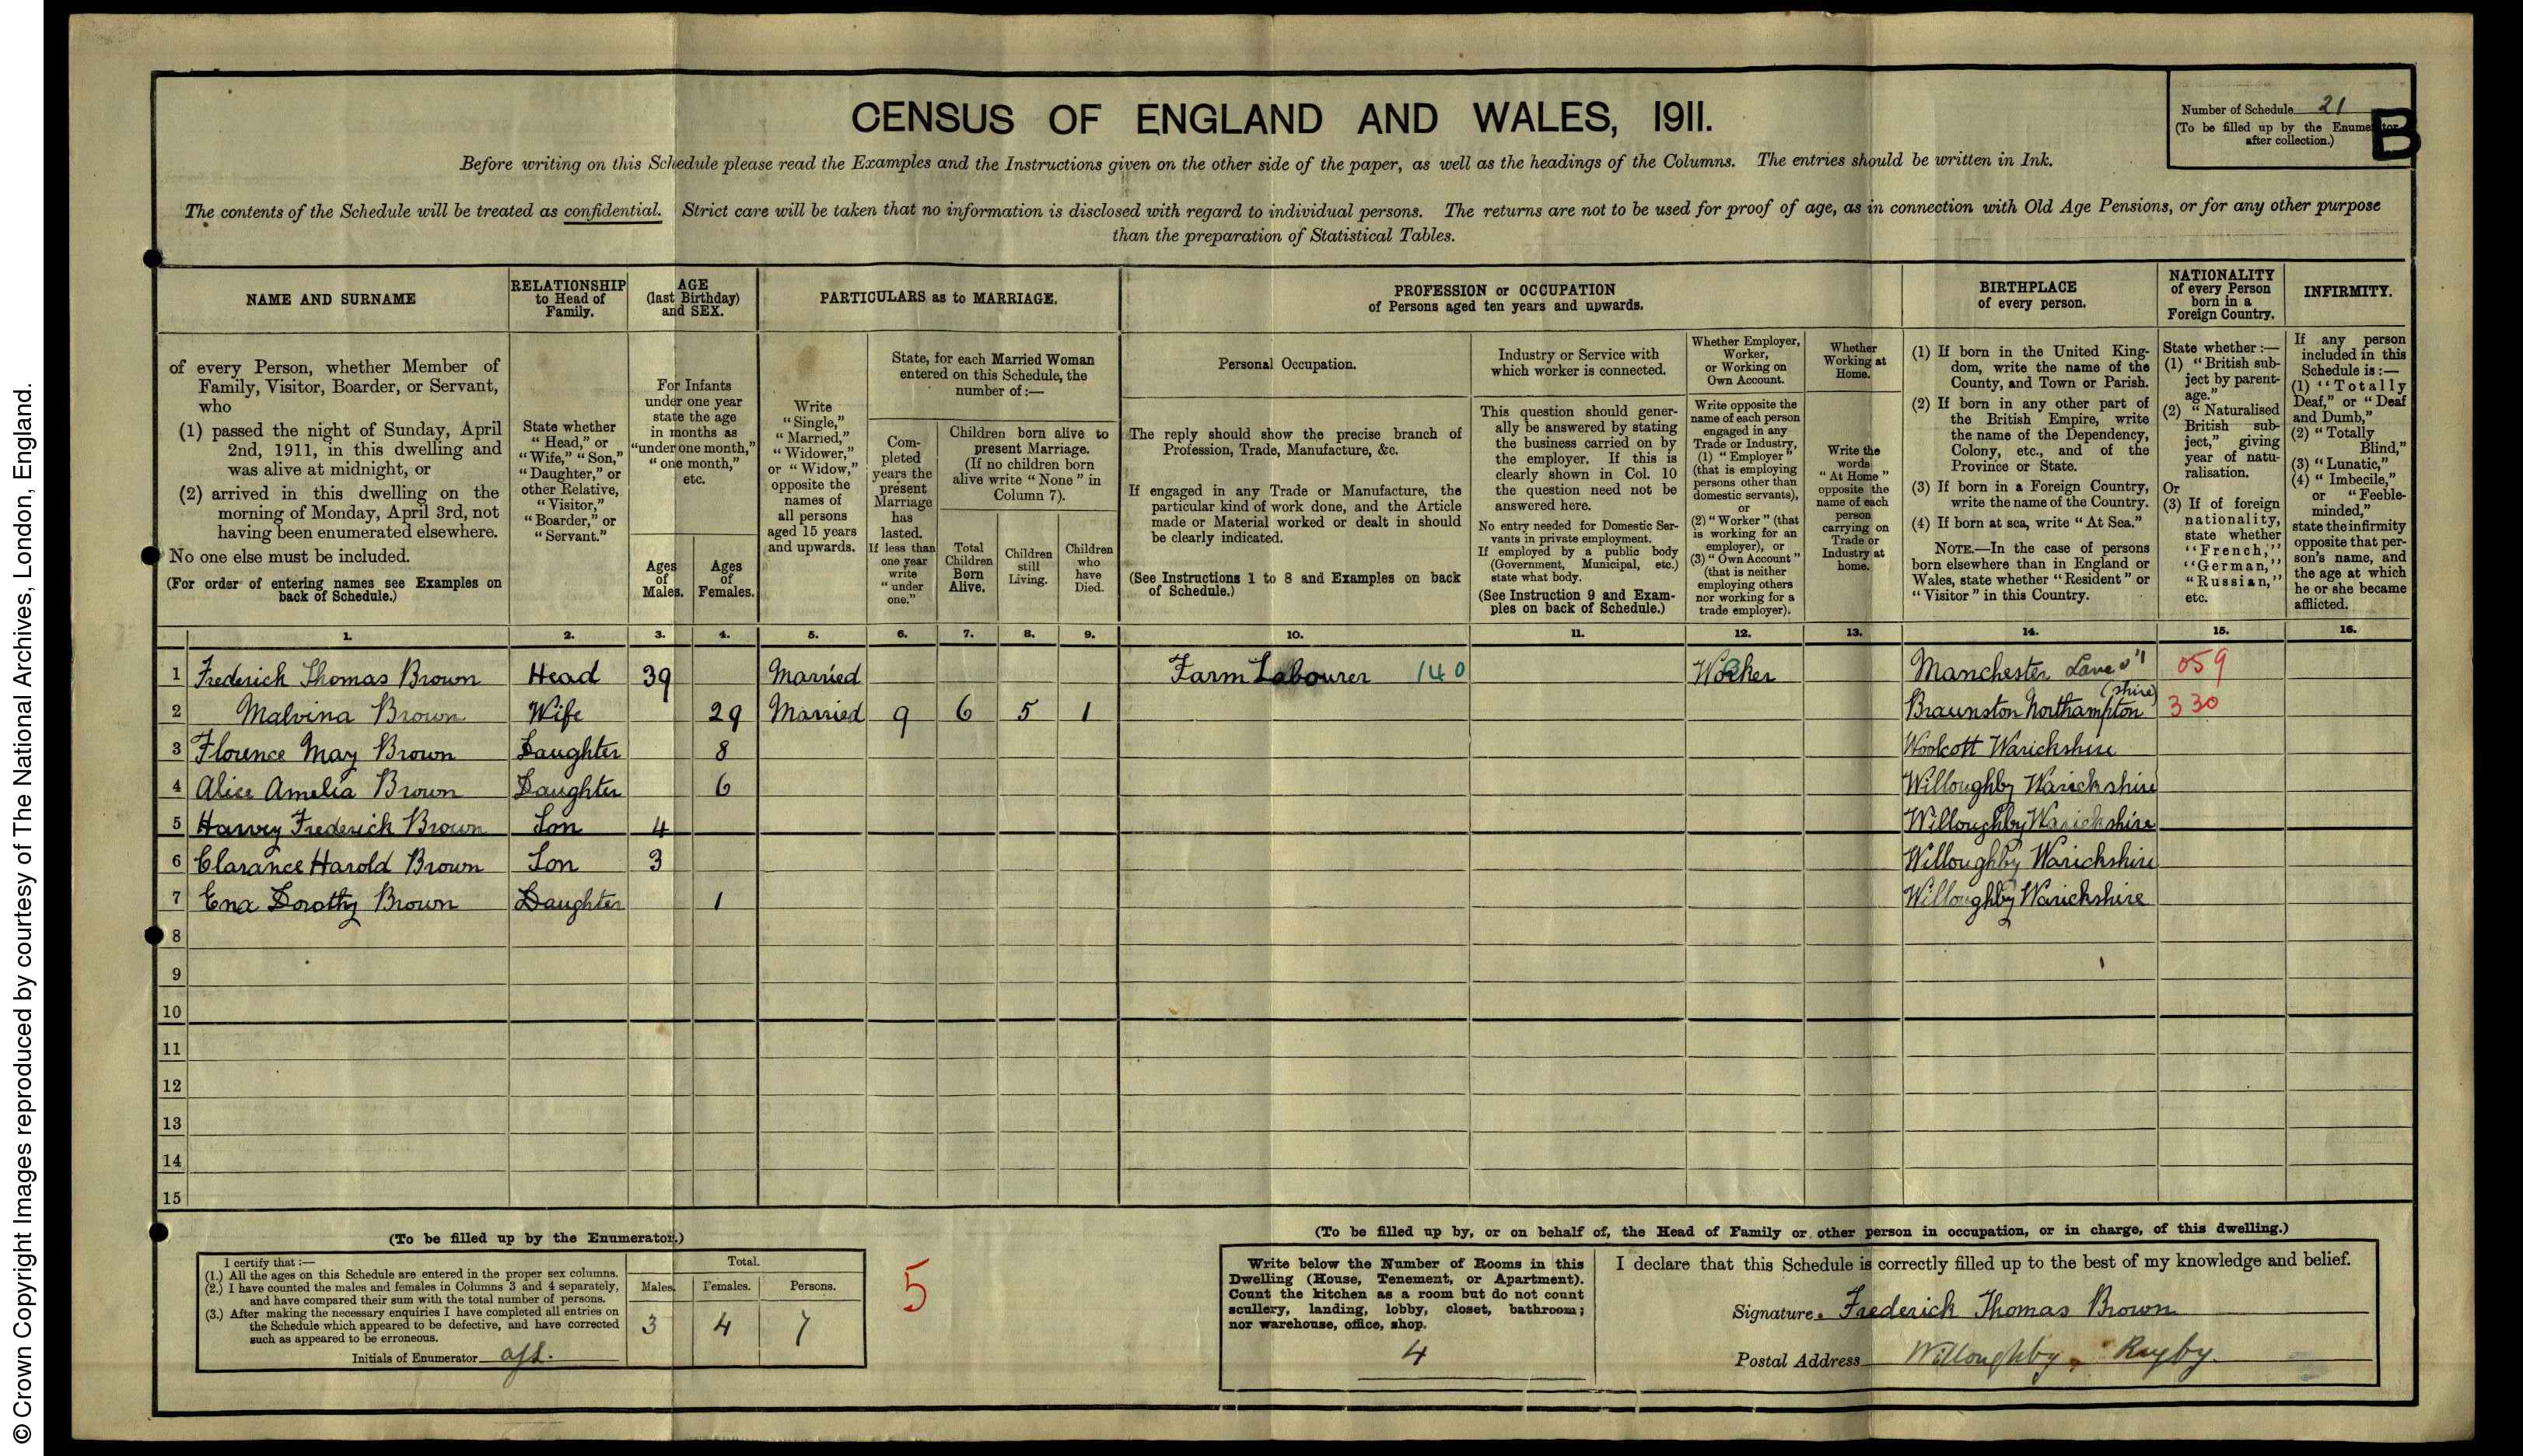 © Crown Copyright Images reproduced by courtesy of The National Archives, London, England.
CENSUS OF ENGLAND AND WALES, 1911.
Number of Schedule 21
(To be filled up by the Enumerator after collection.)
B
Before writing on this Schedule please read the Examples and the Instructions given on the other side of the paper, as well as the headings of the Columns. The entries should be written in Ink.
The contents of the Schedule will be treated as confidential. Strict care will be taken that no information is disclosed with regard to individual persons. The returns are not to be used for proof of age, as in connection with Old Age Pensions, or for any other purpose
than the preparation of Statistical Tables.
NAME AND SURNAME
of every Person, whether Member of
Family, Visitor, Boarder, or Servant,
who
(1) passed the night of Sunday, April
2nd, 1911, in this dwelling and
was alive at midnight, or
(2) arrived in this dwelling on the
morning of Monday, April 3rd, not
having been enumerated elsewhere.
No one else must be included.
(For order of entering names see Examples on
back of Schedule.)
RELATIONSHIP
to Head of
Family.
State whether
"Head," or
"Wife," "Son,"
"Daughter," or
other Relative,
"Visitor,"
"Boarder," or
"Servant."
AGE
(last Birthday)
and SEX.
For Infants
under one year
state the age
in months as
"under one month,"
"one month,"
etc.
Ages
of
Males.
Ages
of
Females.
PARTICULARS as to MARRIAGE.
Write
"Single,"
"Married,"
"Widower,"
or "Widow,"
opposite the
names of
all persons
aged 15 years
and upwards.
State, for each Married Woman
entered on this Schedule, the
number of:—
Com-
pleted
years the
present
Marriage
has
lasted.
If less than
one year
write
"under
one."
Children born alive to
present Marriage.
(If no children born
alive write "None" in
Column 7).
Total
Children
Born
Alive.
Children
still
Living.
Children
who
have
Died.
PROFESSION or OCCUPATION
of Persons aged ten years and upwards.
Personal Occupation.
The reply should show the precise branch of
Profession, Trade, Manufacture, &c.
If engaged in any Trade or Manufacture, the
particular kind of work done, and the Article
made or Material worked or dealt in should
be clearly indicated.
(See Instructions 1 to 8 and Examples on back
of Schedule.)
Industry or Service with
which worker is connected.
This question should gener-
ally be answered by stating
the business carried on by
the employer. If this is
clearly shown in Col. 10
the question need not be
answered here.
No entry needed for Domestic Ser-
vants in private employment.
If employed by a public body
(Government, Municipal, etc.)
state what body.
(See Instruction 9 and Exam-
ples on back of Schedule.)
Whether Employer,
Worker,
or Working on
Own Account.
Write opposite the
name of each person
engaged in any
Trade or Industry,
(1) "Employer"
(that is employing
persons other than
domestic servants),
or
(2) "Worker" (that
is working for an
employer), or
(3) "Own Account"
(that is neither
employing others
nor working for a
trade employer).
Whether
Working at
Home.
Write the
words
"At Home"
opposite the
name of each
person
carrying on
Trade or
Industry at
home.
BIRTHPLACE
of every person.
(1) If born in the United King-
dom, write the name of the
County, and Town or Parish.
(2) If born in any other part of
the British Empire, write
the name of the Dependency,
Colony, etc., and of the
Province or State.
(3) If born in a Foreign Country,
write the name of the Country.
(4) If born at sea, write "At Sea."
NOTE.—In the case of persons
born elsewhere than in England or
Wales, state whether "Resident" or
"Visitor" in this Country.
NATIONALITY
of every Person
born in a
Foreign Country.
State whether:—
(1) "British sub-
ject by parent-
age."
(2) "Naturalised
British sub-
ject," giving
year of natu-
ralisation.
Or
(3) If of foreign
nationality,
state whether
"French,"
"German,"
"Russian,"
etc.
INFIRMITY.
If any person
included in this
Schedule is:—
(1) "Totally
Deaf," or "Deaf
and Dumb,"
(2) "Totally
Blind,"
(3) "Lunatic,"
(4) "Imbecile,"
or "Feeble-
minded,"
state the infirmity
opposite that per-
son's name, and
the age at which
he or she became
afflicted.
1. 2. 3. 4. 5. 6. 7. 8. 9. 10. 11. 12. 13. 14. 15. 16.
1 Frederick Thomas Brown Head 39 Married Farm Labourer 140 Worker Manchester 059
2 Malvina Brown Wife 29 Married 9 6 5 1 Braunston Northampton (shire) 330
3 Florence May Brown Daughter 8 Woolcott Warickshire
4 Alice Amelia Brown Daughter 6 Willoughby Warickshire
5 Harvey Frederick Brown Son 4 Willoughby Warickshire
6 Clarance Harold Brown Son 3 Willoughby Warickshire
7 Ena Dorothy Brown Daughter 1 Willoughby Warickshire
8
9
10
11
12
13
14
15
(To be filled up by the Enumerator.)
I certify that:—
(1.) All the ages on this Schedule are entered in the proper sex columns.
(2.) I have counted the males and females in Columns 3 and 4 separately,
and have compared their sum with the total number of persons.
(3.) After making the necessary enquiries I have completed all entries on
the Schedule which appeared to be defective, and have corrected
such as appeared to be erroneous.
Initials of Enumerator
Total.
Males. Females. Persons.
3 4 7
5
(To be filled up by, or on behalf of, the Head of Family or other person in occupation, or in charge, of this dwelling.)
Write below the Number of Rooms in this
Dwelling (House, Tenement, or Apartment).
Count the kitchen as a room but do not count
scullery, landing, lobby, closet, bathroom;
nor warehouse, office, shop.
4
I declare that this Schedule is correctly filled up to the best of my knowledge and belief.
Signature Frederick Thomas Brown
Postal Address Willoughby, Rugby.